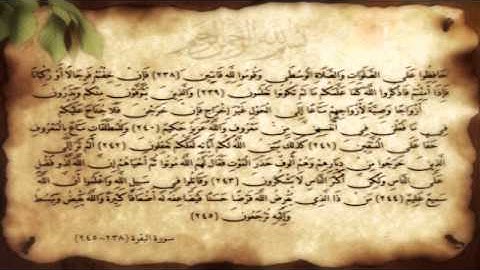 بسم الله الرحمن الرحيم
حَافِظُوا عَلَى الصَّلَوَاتِ وَالصَّلَاةِ الْوُسْطَى وَقُومُوا لِلَّهِ قَانِتِينَ (٢٣٨) فَإِنْ خِفْتُمْ فَرِجَالًا أَوْ رُكْبَانًا
فَإِذَا أَمِنْتُمْ فَاذْكُرُوا اللَّهَ كَمَا عَلَّمَكُمْ مَا لَمْ تَكُونُوا تَعْلَمُونَ (٢٣٩) وَالَّذِينَ يُتَوَفَّوْنَ مِنْكُمْ وَيَذَرُونَ
أَزْوَاجًا وَصِيَّةً لِأَزْوَاجِهِمْ مَتَاعًا إِلَى الْحَوْلِ غَيْرَ إِخْرَاجٍ فَإِنْ خَرَجْنَ فَلَا جُنَاحَ عَلَيْكُمْ
فِي مَا فَعَلْنَ فِي أَنْفُسِهِنَّ مِنْ مَعْرُوفٍ وَاللَّهُ عَزِيزٌ حَكِيمٌ (٢٤٠) وَلِلْمُطَلَّقَاتِ مَتَاعٌ بِالْمَعْرُوفِ
حَقًّا عَلَى الْمُتَّقِينَ (٢٤١) كَذَلِكَ يُبَيِّنُ اللَّهُ لَكُمْ آيَاتِهِ لَعَلَّكُمْ تَعْقِلُونَ (٢٤٢) أَلَمْ تَرَ إِلَى
الَّذِينَ خَرَجُوا مِنْ دِيَارِهِمْ وَهُمْ أُلُوفٌ حَذَرَ الْمَوْتِ فَقَالَ لَهُمُ اللَّهُ مُوتُوا ثُمَّ أَحْيَاهُمْ إِنَّ اللَّهَ لَذُو فَضْلٍ
عَلَى النَّاسِ وَلَكِنَّ أَكْثَرَ النَّاسِ لَا يَشْكُرُونَ (٢٤٣) وَقَاتِلُوا فِي سَبِيلِ اللَّهِ وَاعْلَمُوا أَنَّ اللَّهَ
سَمِيعٌ عَلِيمٌ (٢٤٤) مَنْ ذَا الَّذِي يُقْرِضُ اللَّهَ قَرْضًا حَسَنًا فَيُضَاعِفَهُ لَهُ أَضْعَافًا كَثِيرَةً وَاللَّهُ يَقْبِضُ وَيَبْسُطُ
وَإِلَيْهِ تُرْجَعُونَ (٢٤٥)
سورة البقرة (٢٣٨-٢٤٥)